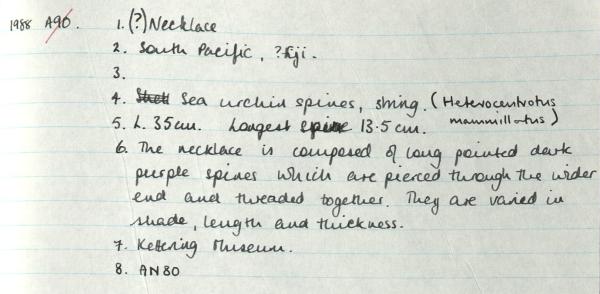 1988 A90. 1. (?) Necklace
2. South Pacific, ?Fiji.
3.
4. Shell Sea urchin spines, string. (Heterocentrotus
5. L. 35cm. Longest spine 13.5 cm. mammillatus)
6. The necklace is composed of long pointed dark
purple spines which are pierced through the wider
end and threaded together. They are varied in
shade, length and thickness.
7. Kettering Museum.
8. AN80